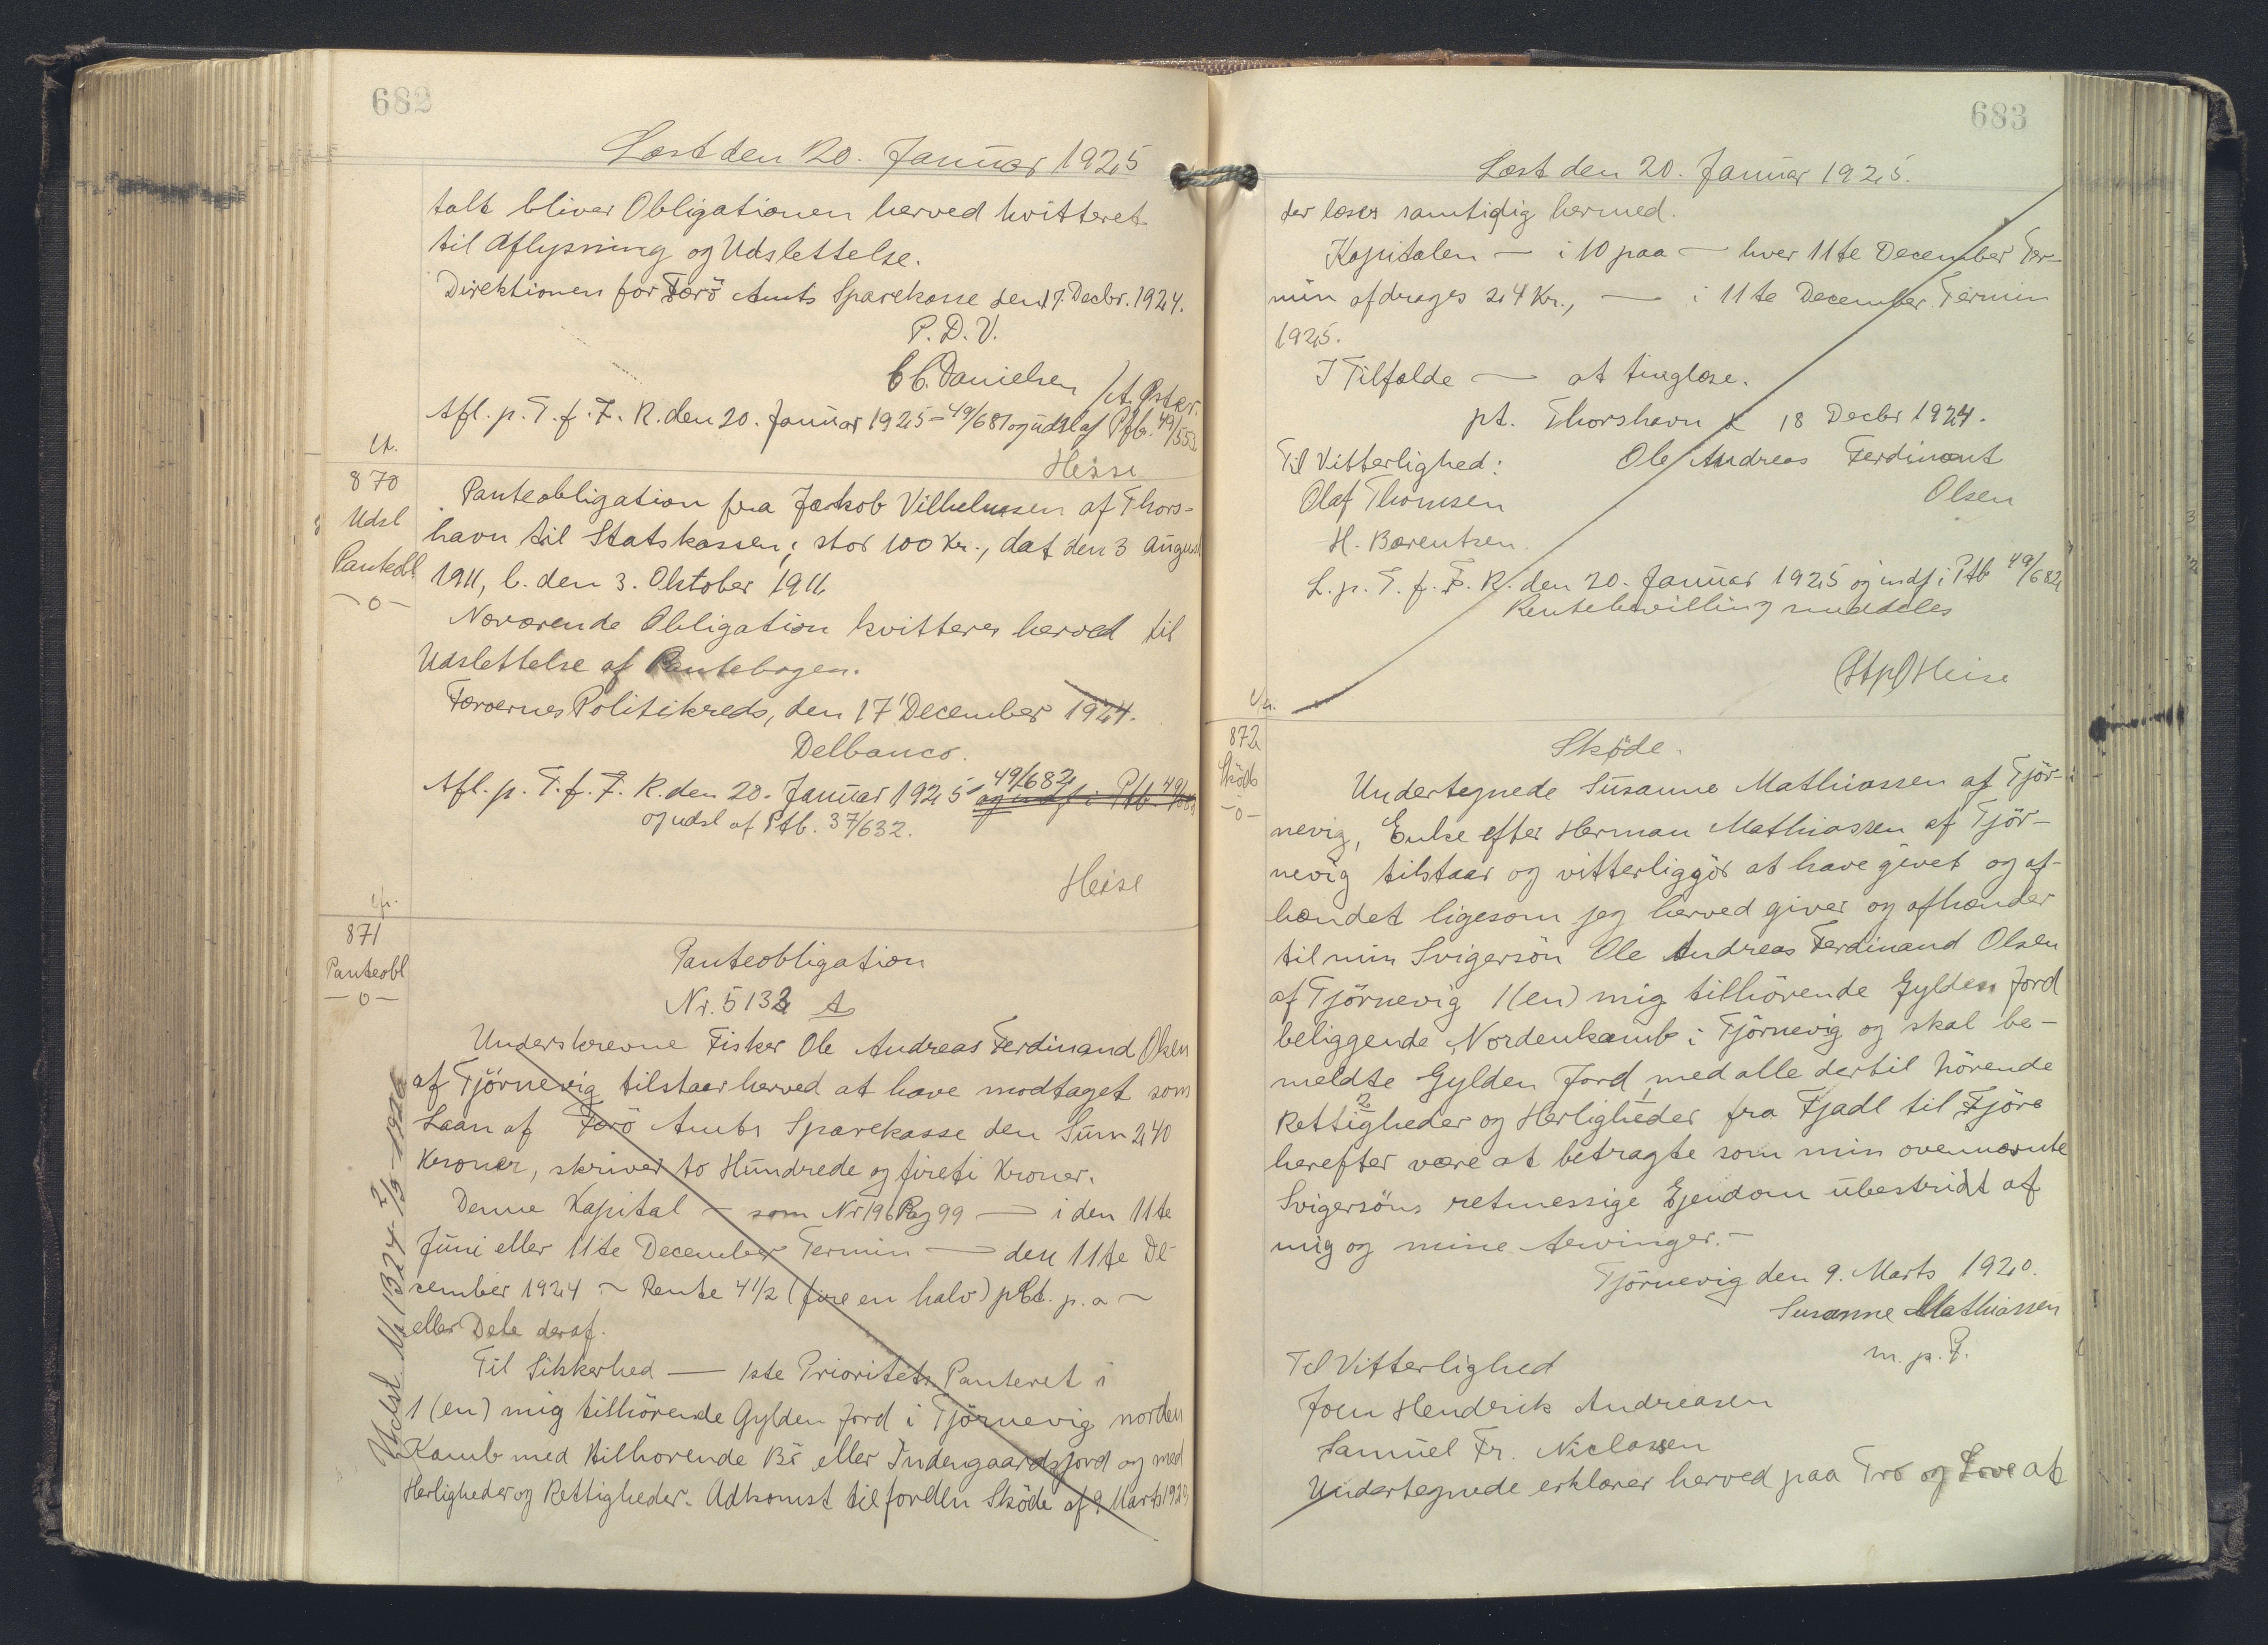 682
Læst den 20. Januar 1925
talt bliver Obligationen herved kvitteret
til Aflysning og Udslettelse.
Direktionen for Færö Amts Sparekasse den 17. Decbr. 1924.
P. D. V.
C C. Danielsen / A. Öster.
Afl. p. T. f. F. R. den 20. Januar 1925 - 49/681 og udsl af Ptb. 49/553
Heise
870
Udsl
Panteobl
-o-
Panteobligation fra Jækob Vilhelmsen af Thors-
havn til Statskassen, stor 100 Kr., dat den 3 August
1911, l. den 3. Oktober 1911
Nærværende Obligation kvitteres herved til
Udslettelse af Pantebogen.
Færøernes Politikreds, den 17 December 1924.
Delbanco.
Afl. p. T. f. F. R. den 20. Januar 1925 49/682 og indf i Ptb. 49/
og udsl af Ptb. 37/632.
Heise
871
Panteobl
-o-
Panteobligation
Nr. 5132 A
Underskrevne Fisker Ole Andreas Ferdinand Olsen
af Tjörnevig tilstaar herved at have modtaget som
Laan af Færö Amts Sparekasse den Sum 240
Kroner, skriver to Hundrede og fireti Kroner.
Denne Kapital - som Nr 196 Pag 99 — i den 11te
Juni eller 11te December Termin — den 11te De-
cember 1924 - Rente 4 1/2 (fire en halv) pCt. p. a -
eller Dele deraf.
Til Sikkerhed — 1ste Prioritets Panteret i
1 (en) mig tilhörende Gylden Jord i Tjörnevig norden
Kamb med tilhorende Bö eller Indengaardsjord og med
Herligheder og Rettigheder. Adkomst til fordln Sköde af 9 Marts 1920
Udsl. Nr 1324 7/5-1926
683
Læst den 20. Januar 1925.
der læses samtidig hermed.
Kapitalen — i 10 paa — hver 11te December Ter-
min afdrages 24 Kr., — i 11te December Termin
1925.
I Tilfælde — at tinglæse.
pt. Thorshavn d 18 Decbr 1924.
Til Vitterlighed: Ole Andreas Ferdinant
Olaf Thomsen Olsen
H. Bærentsen.
L. p. T. f. F. R. den 20. Januar 1925 og indf i Ptb 49/682
Rentebevilling meddeles
(Stpl) Heise
872
Sköde
-o-
Sköde.
Undertegnede Susanne Mathiassen af Tjör-
nevig, Enke efter Herman Mathiassen af Tjör-
nevig tilstaar og vitterliggör at have givet og af-
hændet ligesom jeg herved giver og afhænder
til min Svigersön Ole Andreas Ferdinand Olsen
af Tjörnevig 1 (en) mig tilhörende Gylden Jord
beliggende Nordenkamb i Tjörnevig og skal be-
meldte Gylden Jord med alle dertil hörende
Rettigheder og Herligheder fra Fjadl til Fjöre
herefter være at betragte som min ovennævnte
Svigersöns retmessige Ejendom ubestridt af
mig og mine Arvinger. -
Tjörnevig den 9. Marts 1920.
Susanne Mathiassen
m. p. F.
Til Vitterlighed
Joen Hendrik Andreasen
Samuel Fr. Niclassen
Undertegnede erklærer herved paa Tro og Love at